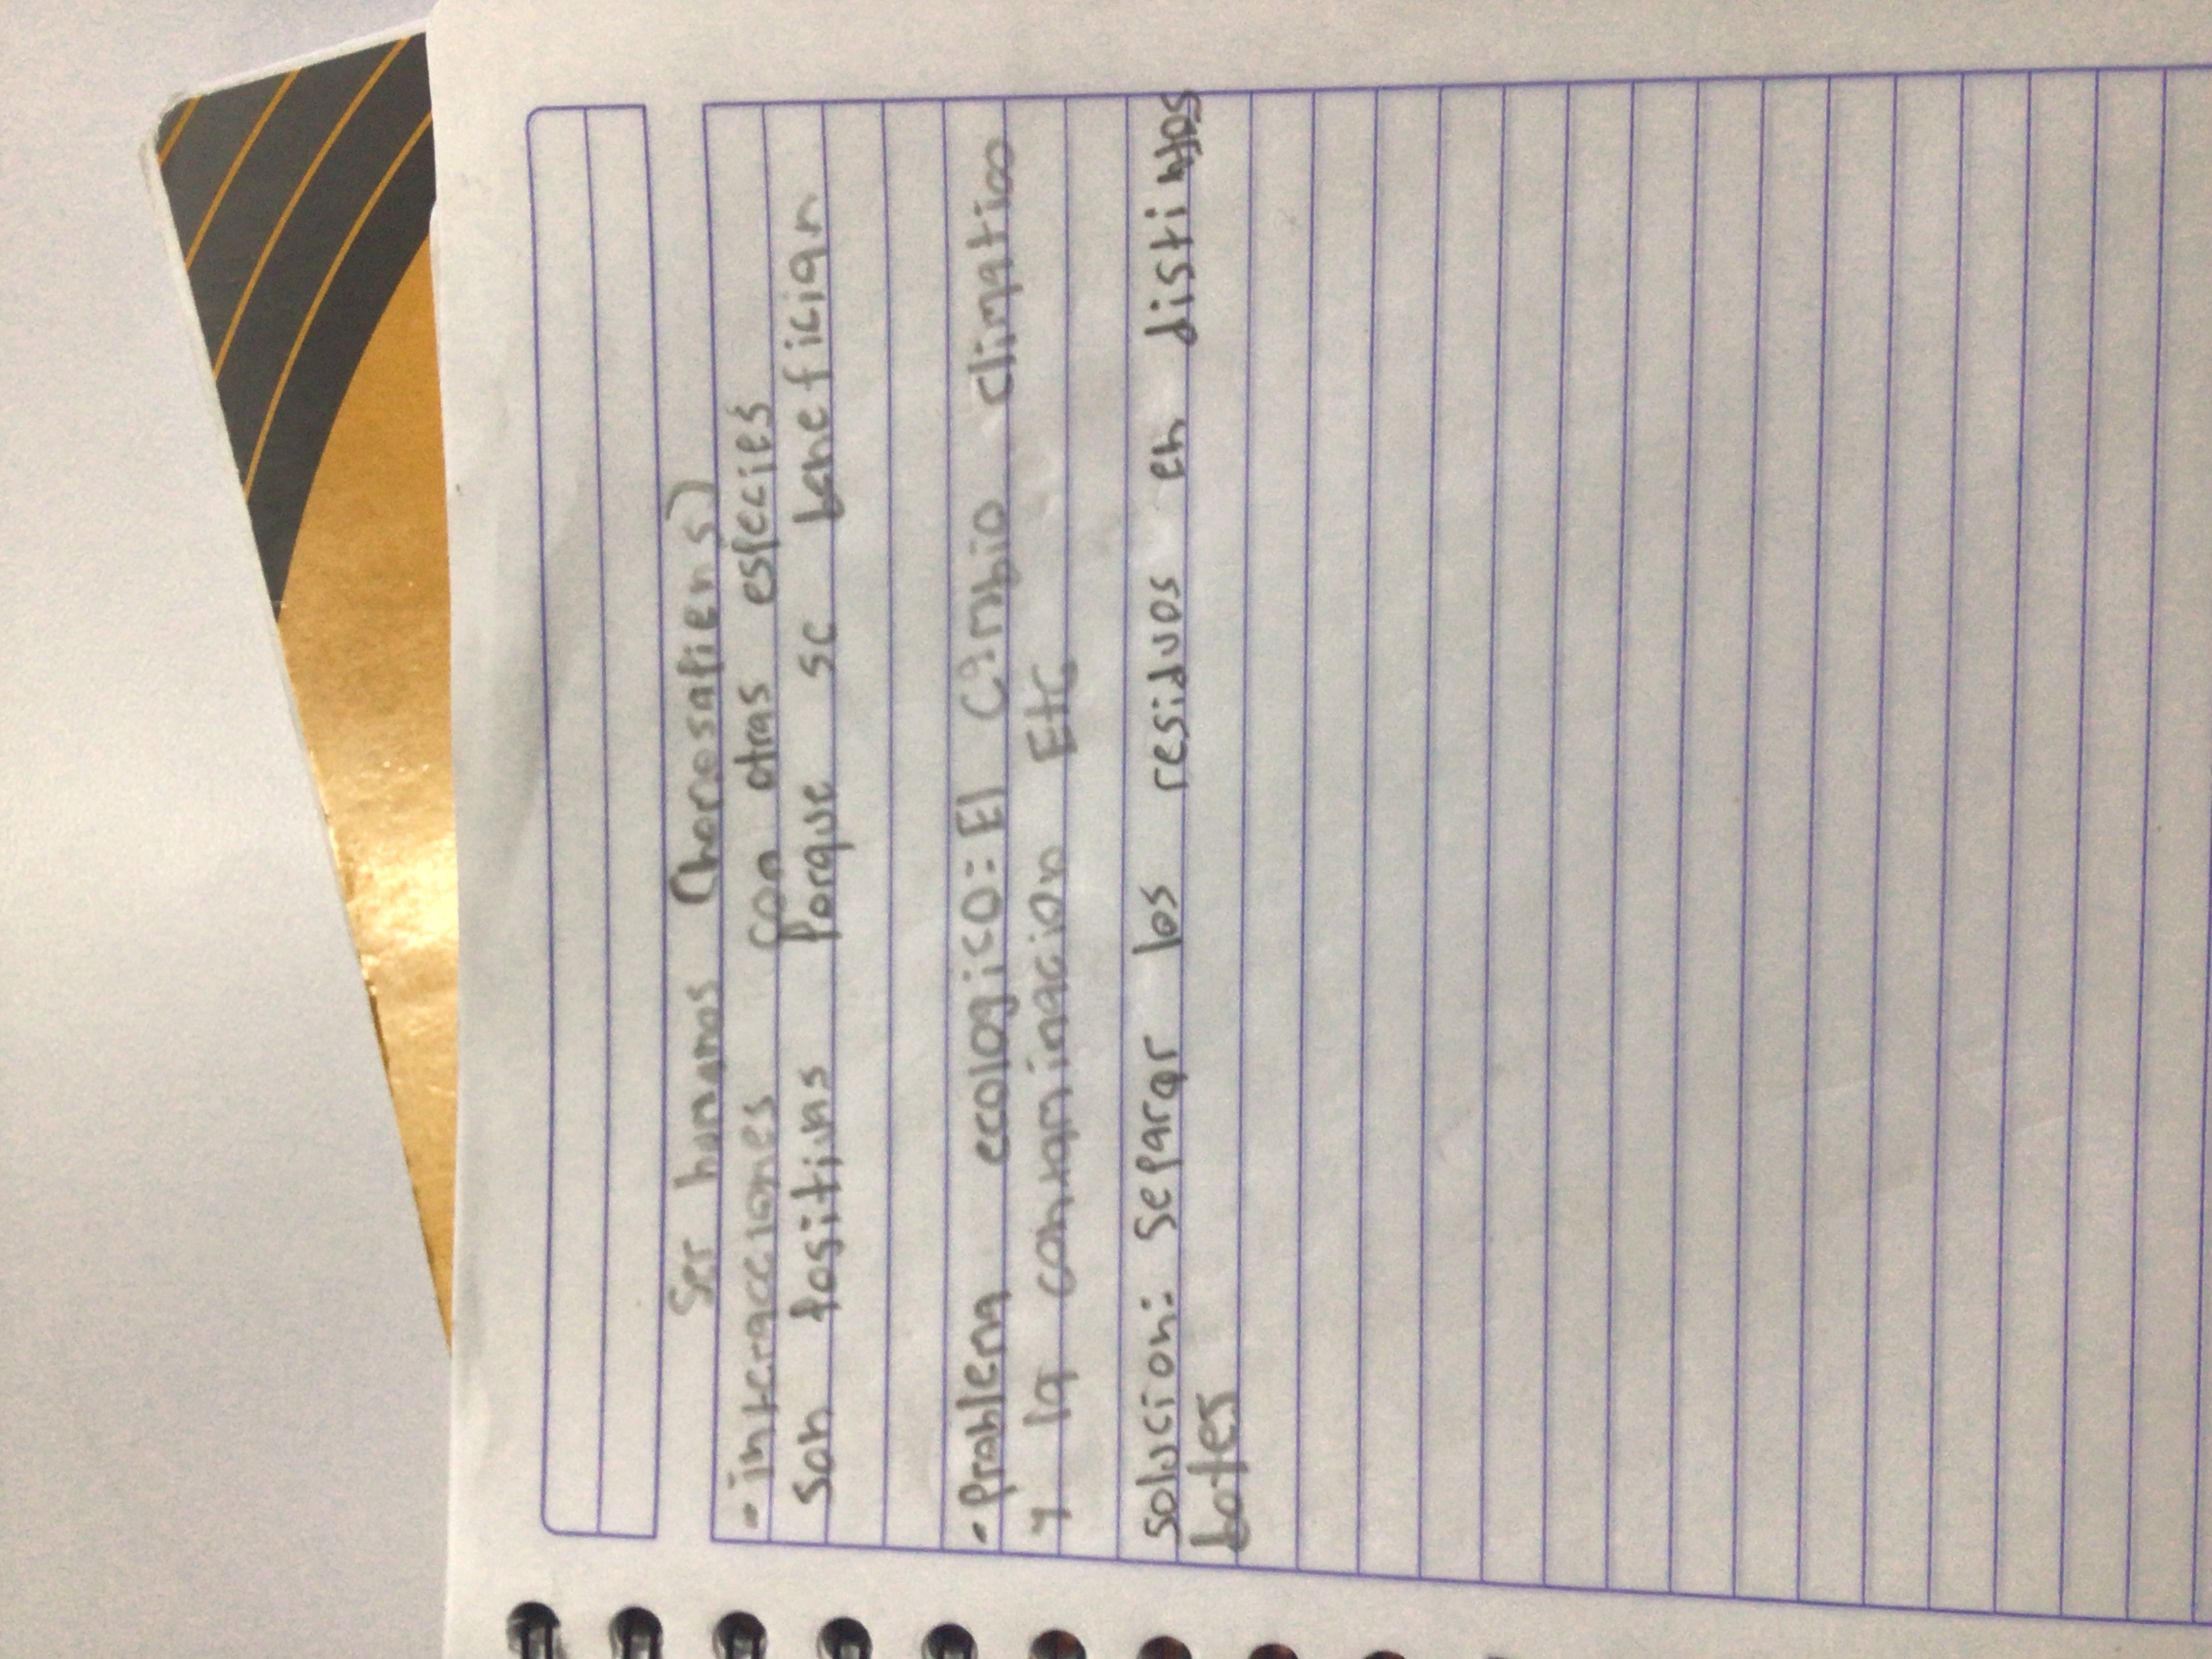 Ser humanos (homosapiens)
- interacciones con otras especies
son positivas porque se benefician
- Problema ecologico: El Cambio climatico
y la contaminacion Etc
Solucion: Separar los residuos en distintos
botes